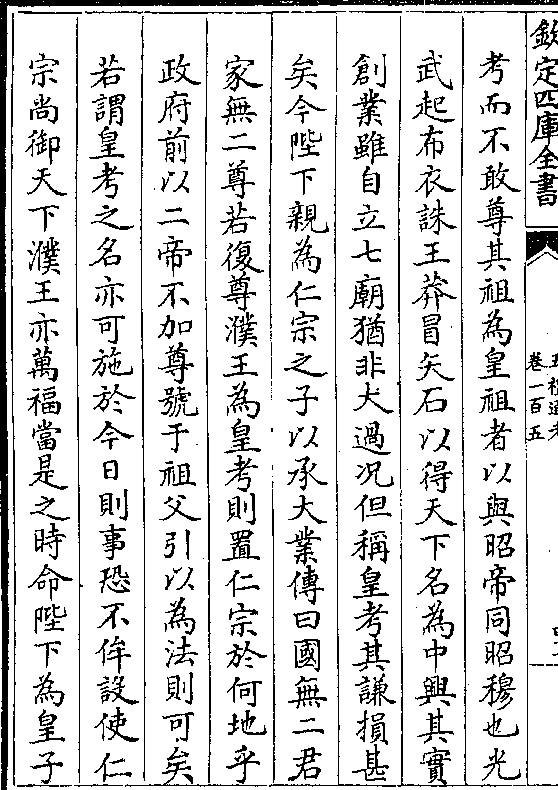 欽定四庫全書
五禮通考
卷一百五
考而不敢尊其祖為皇祖者以與昭帝同昭穆也光
武起布衣誅王莽冒矢石以得天下名為中興其實
創業雖自立七廟猶非大過况但稱皇考其謙損甚
矣今陛下親為仁宗之子以承大業傳曰國無二君
家無二尊若復尊濮王為皇考則置仁宗於何地乎
政府前以二帝不加尊號于祖父引以為法則可矣
若謂皇考之名亦可施於今日則事恐不侔設使仁
宗尚御天下濮王亦萬福當是之時命陛下為皇子